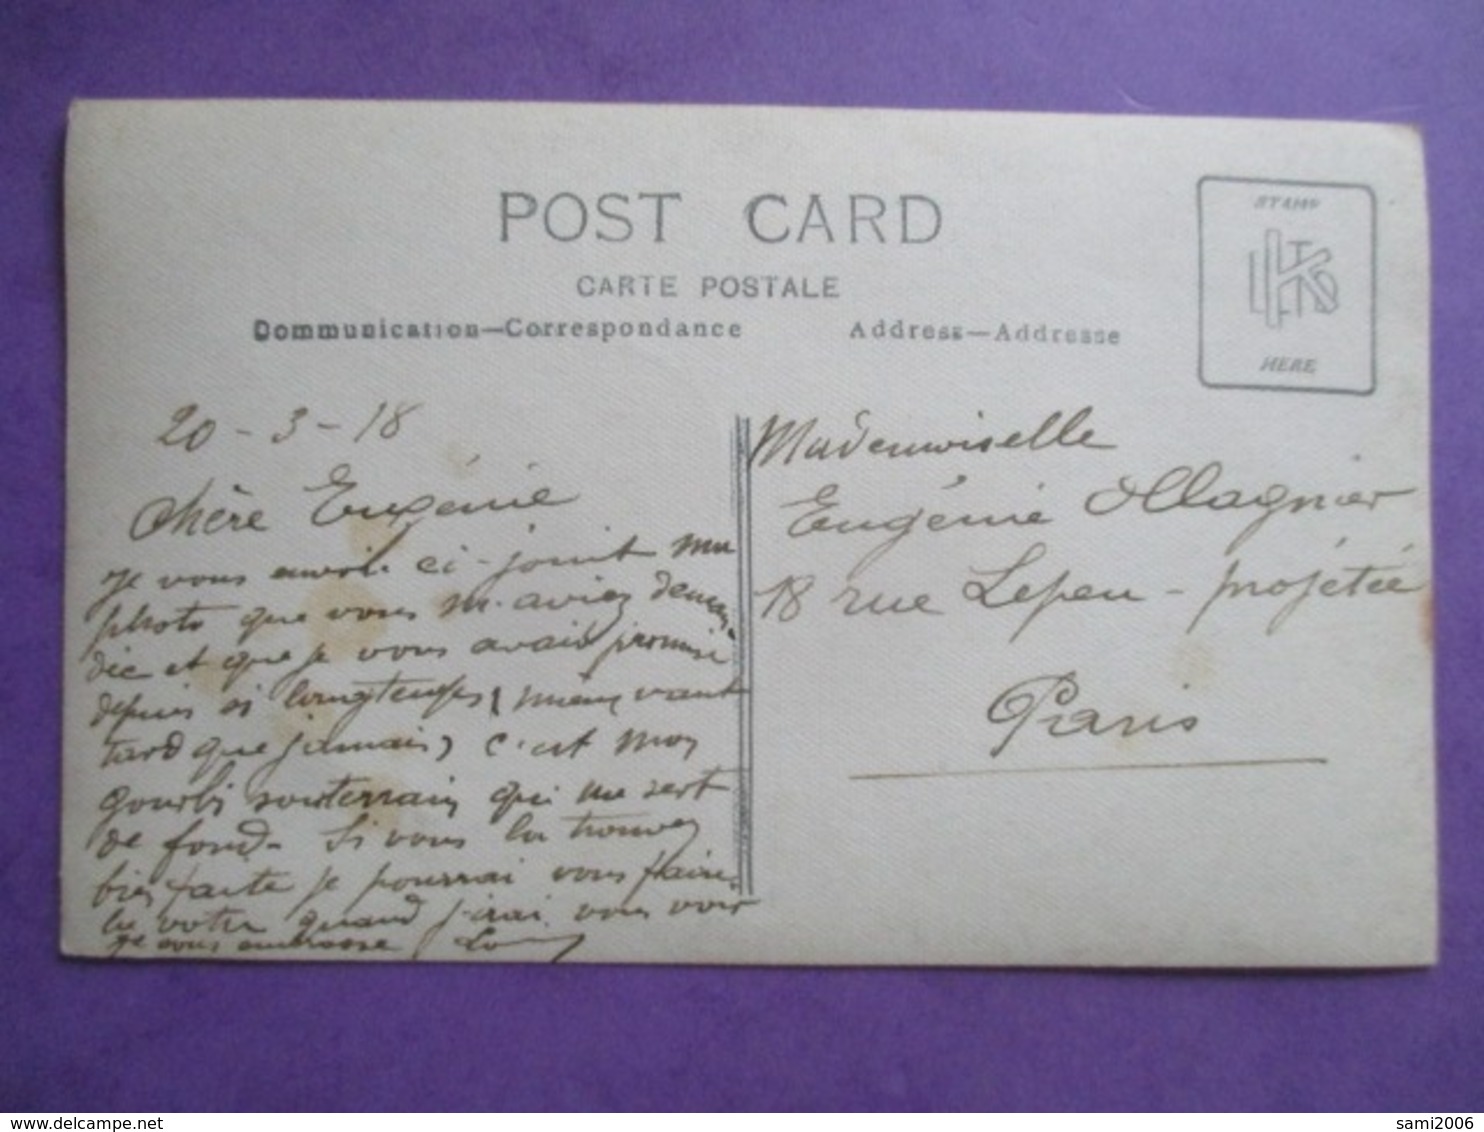 POST CARD
CARTE POSTALE
Communication—Correspondance
Address—Addresse
STAMP
HERE
20-3-18
Chère Eugénie
Je vous envoie ci-joint ma
photo que vous m'aviez deman
dée et que je vous avais promise
depuis si longtemps, mieux vaut
tard que jamais, c'est mon
gourbi souterrain qui me sert
de fond. Si vous la trouvez
bien faite je pourrai vous faire
la votre quand j'irai vous voir
Je vous embrasse
Mademoiselle
Eugénie Allagnier
18 rue Lepeu-projetée
Paris
sami2006